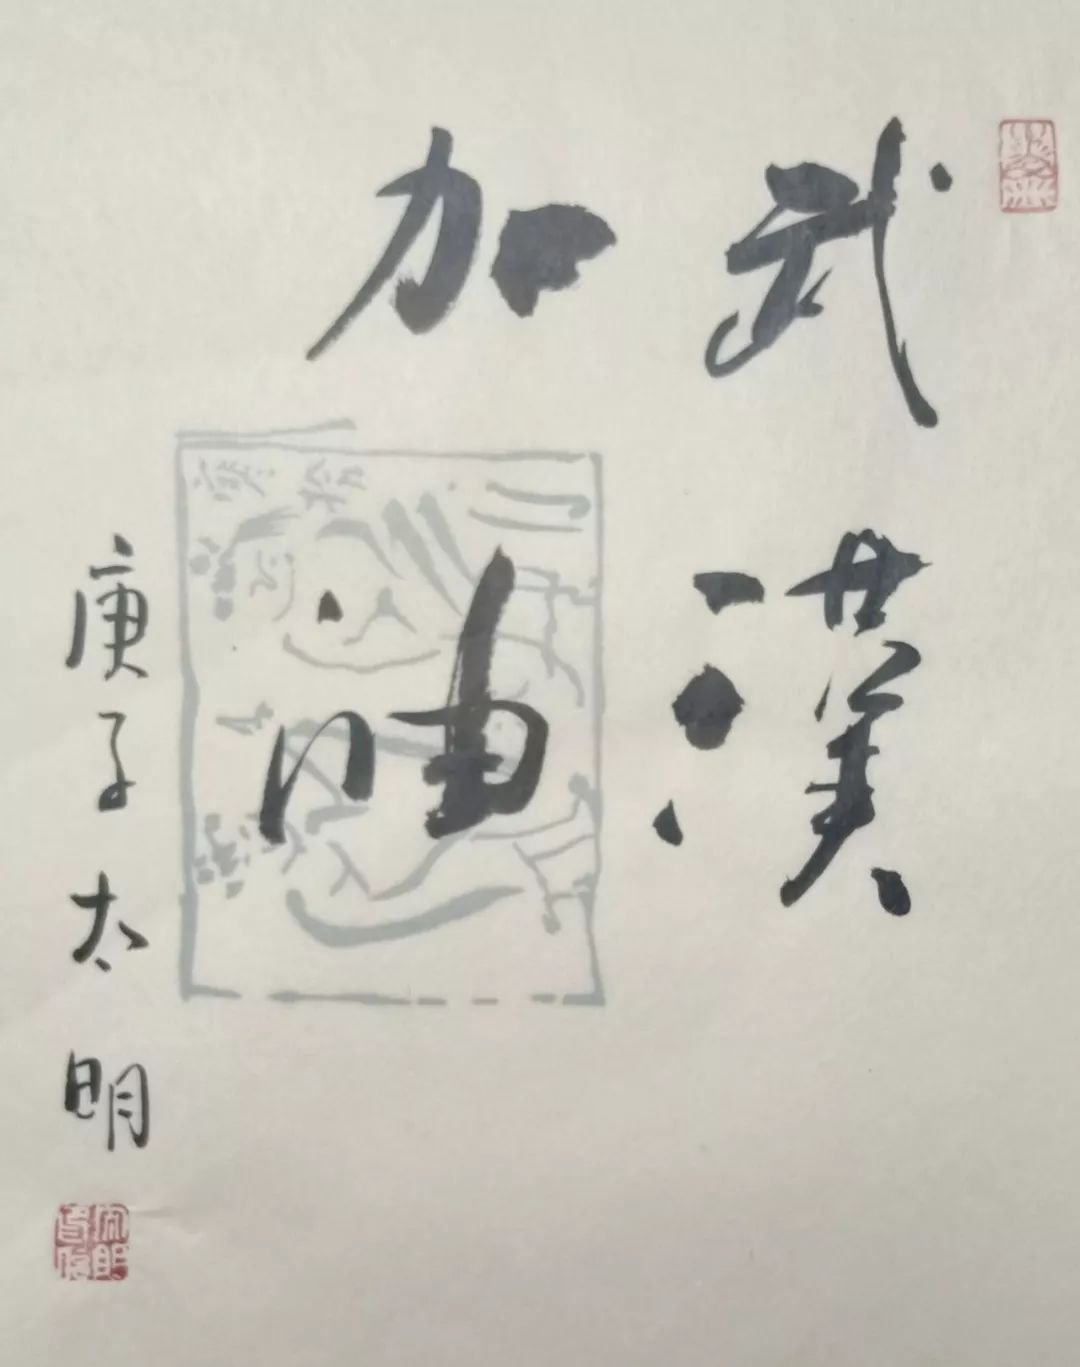 武漢
加油
庚子太明